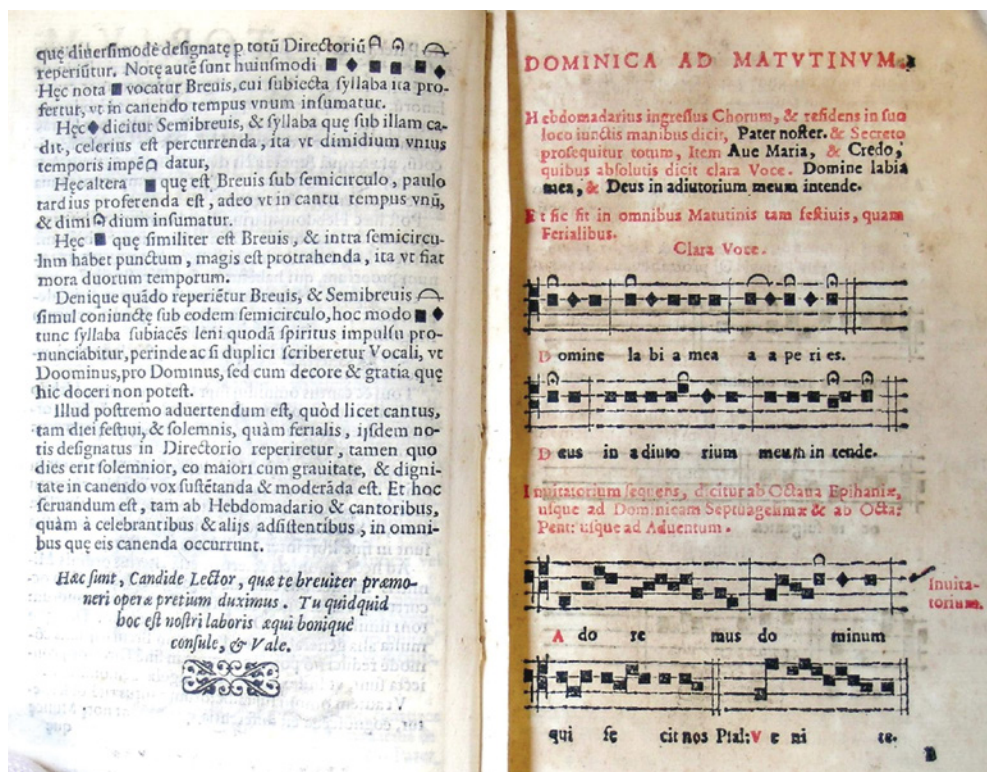 quę diuersimodè designatę p totũ Directoriũ
reperiũtur. Notę autẽ sunt huiusmodi
Hęc nota vocatur Breuis, cui subiecta syllaba ita pro-
fertur, vt in canendo tempus vnum insumatur.
Hęc dicitur Semibreuis, & syllaba quę sub illam ca-
dit, celerius est percurrenda, ita vt dimidium vnius
temporis impẽ datur,
Hęc altera quę est Breuis sub semicirculo, paulo
tardius proferenda est, adeo vt in cantu tempus vnũ,
& dimi dium insumatur.
Hęc quę similiter est Breuis, & intra semicircu-
lum habet punctum, magis est protrahenda, ita vt fiat
mora duorum temporum.
Denique quãdo reperiẽtur Breuis, & Semibreuis
simul coniunctę sub eodem semicirculo, hoc modo
tunc syllaba subiacẽs leni quodã spiritus impulsu pro-
nunciabitur, perinde ac si duplici scriberetur Vocali, vt
Doominus, pro Dominus, sed cum decore & gratia quę
hic doceri non potest.
Illud postremo aduertendum est, quòd licet cantus,
tam diei festiui, & solemnis, quàm ferialis, ijsdem no-
tis designatus in Directorio reperiretur, tamen quo
dies erit solemnior, eo maiori cum grauitate, & digni-
tate in canendo vox sustẽtanda & moderãda est. Et hoc
seruandum est, tam ab Hebdomadario & cantoribus,
quàm à celebrantibus & alijs adsistentibus, in omni-
bus quę eis canenda occurrunt.
Hæc sunt, Candide Lector, quæ te breuiter præmo-
neri operæ pretium duximus. Tu quidquid
hoc est nostri laboris æqui bonique
consule, & Vale.
DOMINICA AD MATVTINVM.
Hebdomadarius ingressus Chorum, & residens in suo
loco iunctis manibus dicit, Pater noster. & Secreto
prosequitur totum, Item Aue Maria, & Credo,
quibus absolutis dicit clara Voce. Domine labia
mea, & Deus in adiutorium meum intende.
Et sic fit in omnibus Matutinis tam festiuis, quam
Ferialibus.
Clara Voce.
D omine la bi a mea a a pe ri es.
D eus in a diuto rium meum in tende.
Inuitatorium sequens, dicitur ab Octaua Epihaniæ,
usque ad Dominicam Septuagesimæ & ab Octa:
Pent: usque ad Aduentum.
Inuita-
torium.
A do re mus do minum
qui fe cit nos Psal: V e ni te.
B